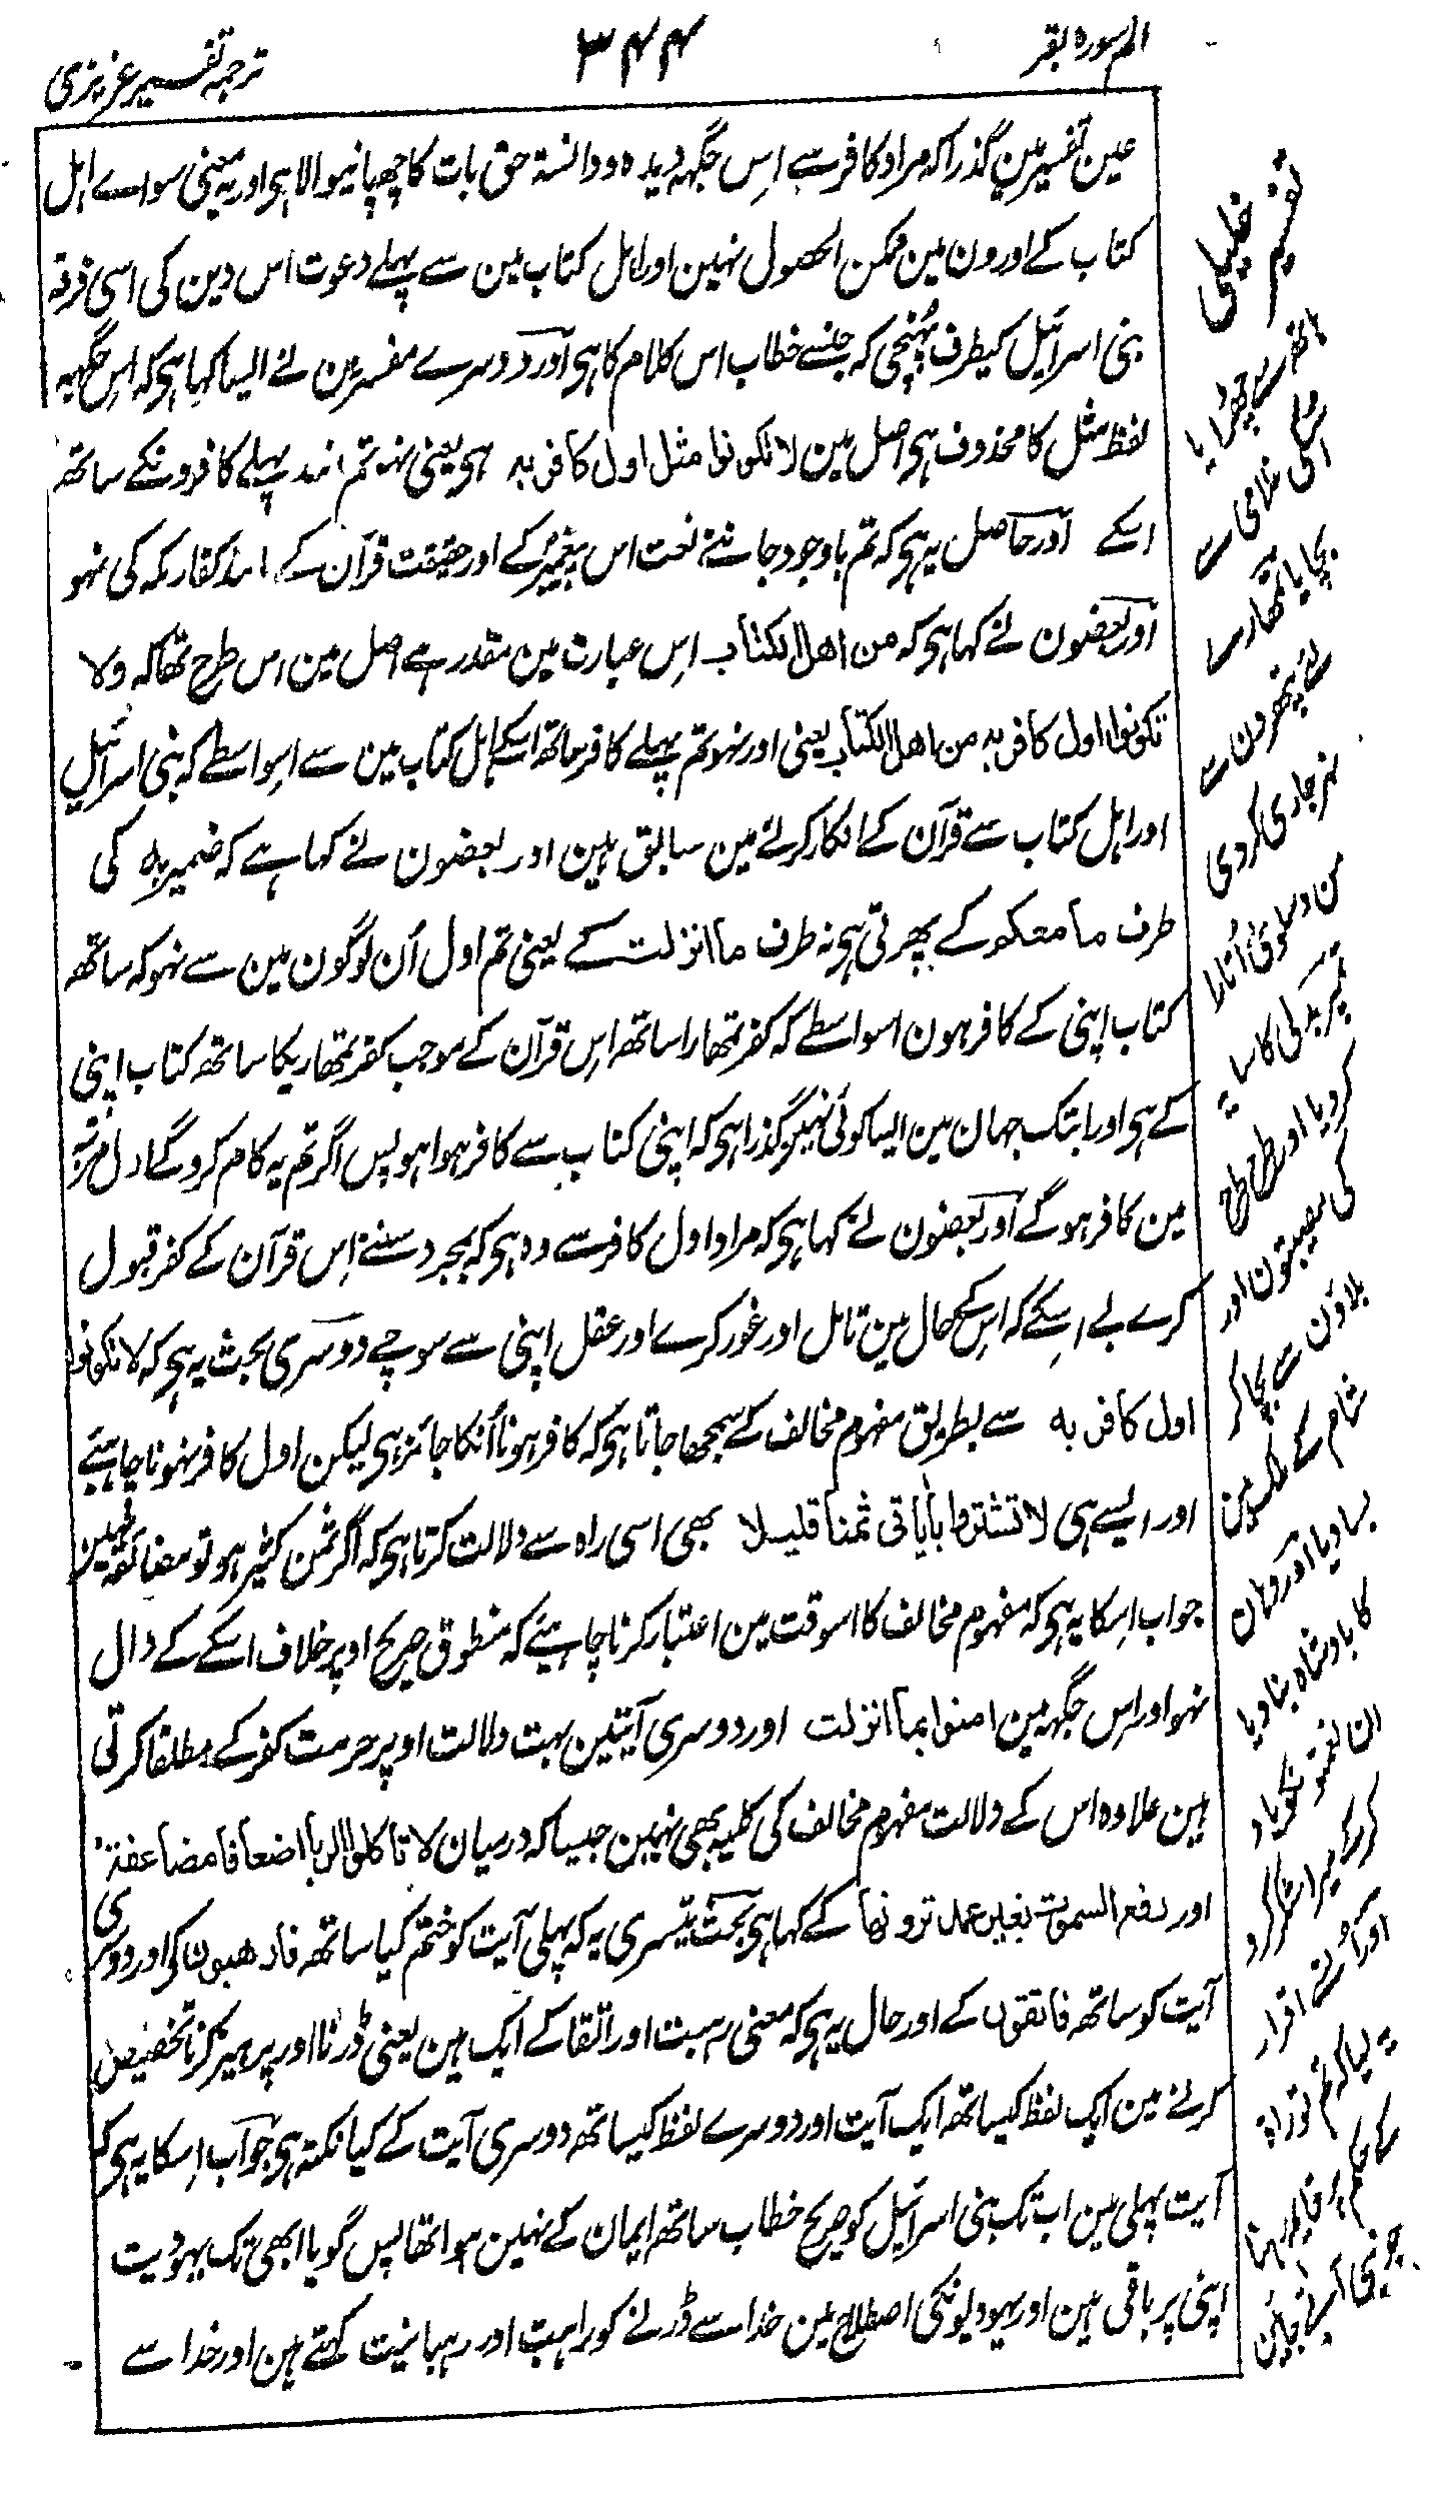 الم سورہ بقر
۳۴۴
ترجمہ تفسیر عزیزی
عین تفسیر مین گذرا کہ مراد کافر سے اِس جگہہ دیدہ و دانستہ حق بات کا چھپانیوالا ہی اور یہ معنی سواے اہل
کتاب کے اورون مین ممکن الحصول نہین اور اہل کتاب مین سے پہلے دعوت اس دین کی اسی فرقہ
بنی اسرائیل کیطرف پہنچی کہ جنسے خطاب اس کلام کا ہی اور دوسرے مفسرین نے ایسا کہا ہی کہ اس جگہہ
لفظ مثل کا محذوف ہی اصل مین لا تکونوا مثل اول کافر بہ ہی یعنی نہو تم مانند پہلے کافرونکے ساتھ
اسکے اور حاصل یہ ہی کہ تم باوجود جاننے نعت اس پیغمبر کے اور حقیقت قرآن کے مانند کفار مکہ کی نہو
اور بعضون نے کہا ہی کہ من اھل الکتاب اِس عبارت مین مقدر ہے اصل مین اس طرح تھا کہ ولا
تکونوا اول کافر بہ من اھل الکتاب یعنی اور نہو تم پہلے کافر ساتھ اسکے اہل کتاب مین سے اسواسطے کہ بنی اسرائیل
اور اہل کتاب سے قرآن کے انکار کرنے مین سابق ہین اور بعضون نے کہا ہے کہ ضمیر بہ کی
طرف ما معکم کے پھرتی ہی نہ طرف ما انزلت کے یعنی تم اول اُن لوگون مین سے نہو کہ ساتھ
کتاب اپنی کے کافر ہون اسواسطے کہ کفر تمھارا ساتھ اِس قرآن کے موجب کفر تمھاریکا ساتھ کتاب اپنی
کے ہی اور ابتک جہان مین ایسا کوئی نہین گذرا ہی کہ اپنی کتاب سے کافر ہوا ہو پس اگر تم یہ کام کروگے اول مرتبہ
مین کافر ہوگے اور بعضون نے کہا ہی کہ مراد اول کافر سے وہ ہی کہ بمجرد سننے اِس قرآن کے کفر قبول
کرے بے اسکے کہ اسکے حال مین تامل اور غور کرے اور عقل اپنی سے سوچے دوسری بحث یہ ہی کہ لا تکونوا
اول کافر بہ سے بطریق مفہوم مخالف کے سمجھا جاتا ہی کہ کافر ہونا اُنکا جائز ہی لیکن اول کافر نہونا چاہیئے
اور ایسے ہی لا تشتروا بایاتی ثمنا قلیلا بھی اسی راہ سے دلالت کرتا ہی کہ اگر ثمن کثیر ہو تو مضائقہ نہین
جواب اِسکا یہ ہی کہ مفہوم مخالف کا اسوقت مین اعتبار کرنا چاہیئے کہ منطوق صریح اوپر خلاف اسکے کے دال
نہو اور اِس جگہہ مین امنوا بما انزلت اور دوسری آیتین بہت دلالت اوپر حرمت کفر کے مطلقا کرتی
ہین علاوہ اس کے دلالت مفہوم مخالف کی کلیہ بھی نہین جیسا کہ درمیان لا تاکلوا الربا اضعافا مضاعفۃ
اور رفع السموت بغیر عمد ترونھا کے کہا ہی بحث تیسری یہ کہ پہلی آیت کو ختم کیا ساتھ فارھبون کی اور دوسری
آیت کو ساتھ فاتقون کے اور حال یہ ہی کہ معنی رہبت اور اتقا کے ایک ہین یعنی ڈرنا اور پرہیز کرنا تخصیص
کرنے مین ایک لفظ کیساتھ ایک آیت اور دوسرے لفظ کیساتھ دوسری آیت کے کیا نکتہ ہی جواب اِسکا یہ ہی کہ
آیت پہلی مین اب تک بنی اسرائیل کو صریح خطاب ساتھ ایمان کے نہین ہوا تھا پس گویا ابھی تک یہودیت
اپنی پر باقی ہین اور یہودیونکی اصطلاح مین خدا سے ڈرنے کو راہب اور رہبانیت کہتے ہین اور خدا سے
تفسیر خلیلی
سے چھڑایا
اسکی غلامی سے
بچایا تمھارے
لئے پتھرون سے
نہر جاری کردی
من و سلوی اُتارا
تمپر بدلی کا سایہ
کردیا اور طرح طرح
کی مصیبتون اور
بلاؤن سے بچاکر
شام کے ملک مین
بسا دیا اور وہان
کا بادشاہ بنا دیا
ان نعمتونکو یاد
کرکے میرا شکر کرو
اور تم نے اقرار
یہ کیا کہ